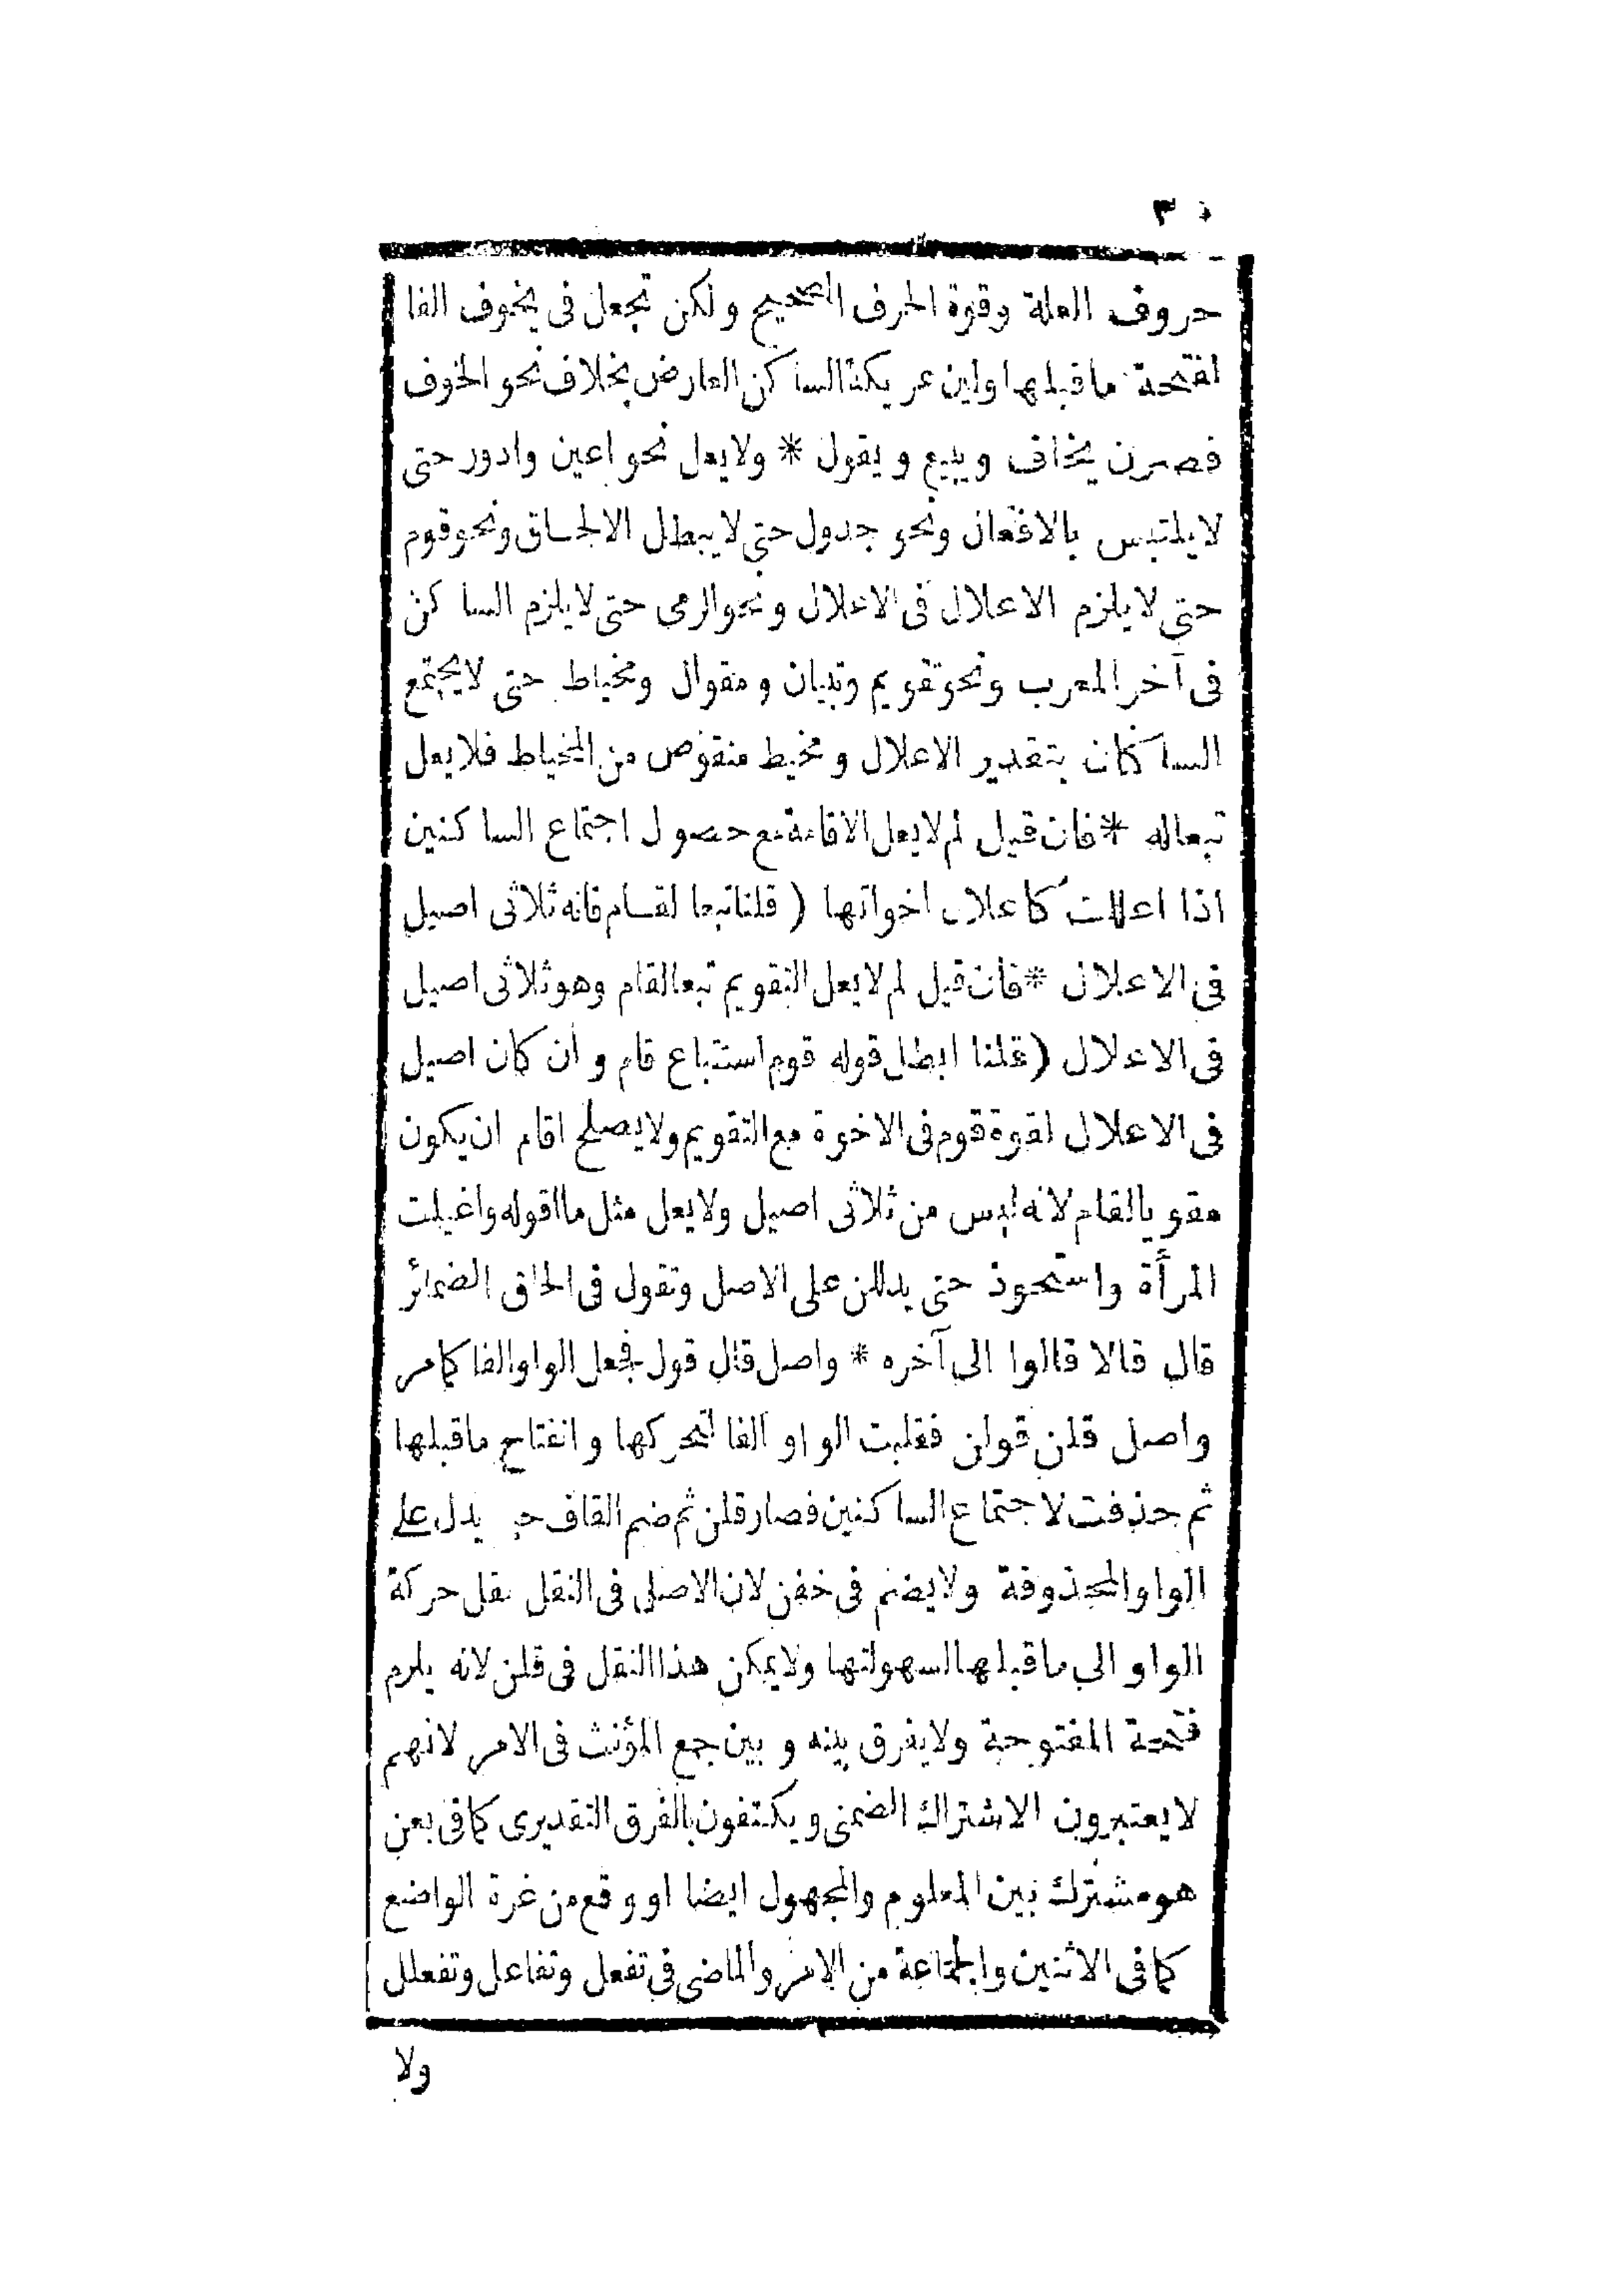 ٣٠
حروف العلة وقوة الحرف الصحيح ولكن تجعل فى يخوف الفا
لفتحة ما قبلها ولين عريكة الساكن العارض بخلاف نحو الخوف
فصرن يخاف ويبيع ويقول * ولايعل نحو اعين وادور حتى
لايلتبس بالافعال ونحو جدول حتى لايبطل الالحاق ونحو قوم
حتى لايلزم الاعلال فى الاعلال ونحو الرمى حتى لايلزم الساكن
فى آخر المعرب ونحو تقويم وتبيان ومقوال ومخياط حتى لايجتمع
الساكنان بتقدير الاعلال ومخيط منقوص من المخياط فلايعل
تبعاله * فان قيل لم لايعل الاقامة مع حصول اجتماع الساكنين
اذا اعللت كاعلال اخواتها (قلنا تبعا لقام فانه ثلاثى اصيل
فى الاعلال * فان قيل لم لايعل التقويم تبعا لقام وهو ثلاثى اصيل
فى الاعلال (قلنا ابطل قوله قوم استتباع قام وان كان اصيل
فى الاعلال لقوة قوم فى الاخوة مع التقويم ولايصلح اقام ان يكون
مقويا لقام لانه ليس من ثلاثى اصيل ولايعل مثل ما اقوله واغيلت
المرأة واستحوذ حتى يدللن على الاصل وتقول فى الحاق الضمائر
قال قالا قالوا الى آخره * واصل قال قول فجعل الواو الفا كمامر
واصل قلن قولن فقلبت الواو الفا لتحركها وانفتاح ماقبلها
ثم حذفت لاجتماع الساكنين فصار قلن ثم ضم القاف يدل على
الواو المحذوفة ولايضم فى خفن لان الاصلى فى النقل نقل حركة
الواو الى ماقبلها لسهولتها ولايمكن هذا النقل فى قلن لانه يلزم
فتحة المفتوحة ولايفرق بينه وبين جمع المؤنث فى الامر لانهم
لايعتبرون الاشتراك الضمنى ويكتفون بالفرق التقديرى كمافى بعن
هو مشترك بين المعلوم والمجهول ايضا او وقع من غرة الواضع
كمافى الاثنين والجماعة من الامر والماضى فى تفعل وتفاعل وتفعلل
ولا